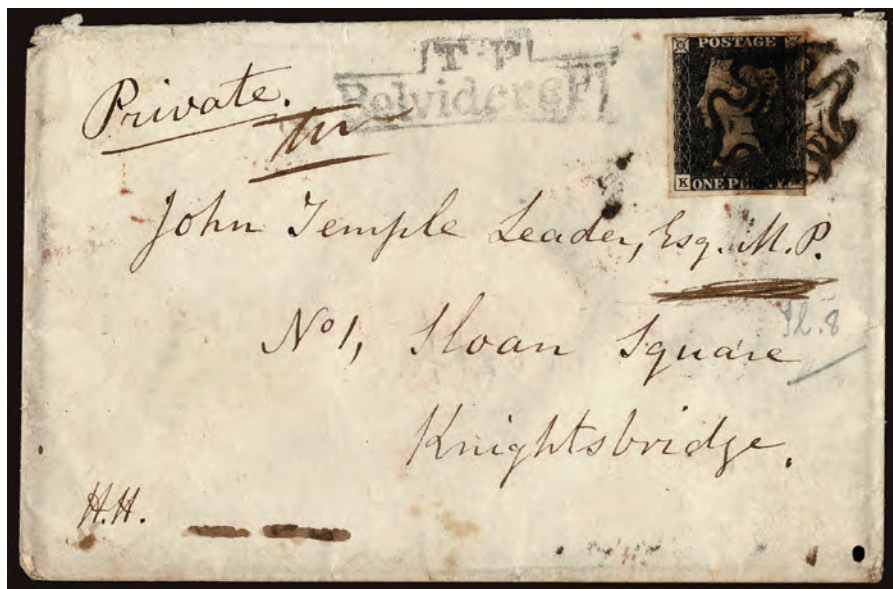 T.P
Belvidere Pl
POSTAGE
K ONE PENNY
Private.
John Temple Leader, Esq. M.P.
Pl. 8
No 1, Sloan Square
Knightsbridge.
H.H.